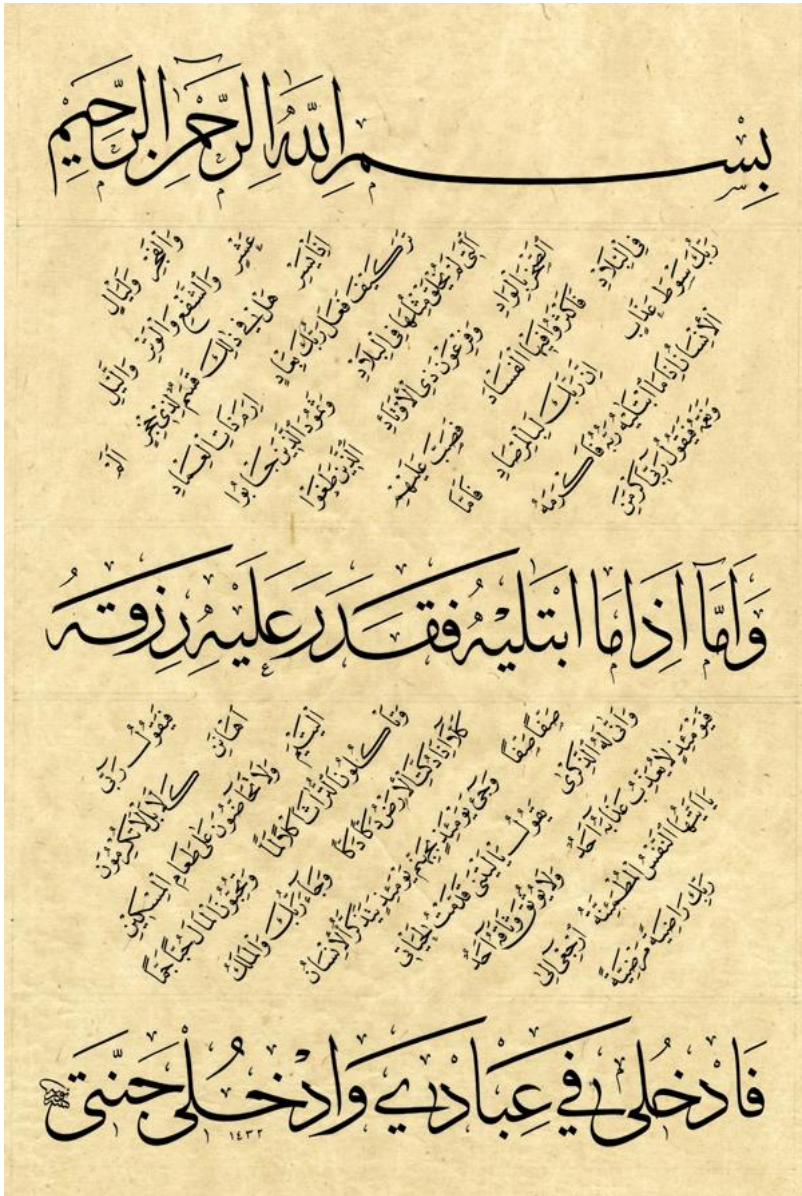 بِسْمِ اللَّهِ الرَّحْمٰنِ الرَّحِيمِ
وَالْفَجْرِ وَلَيَالٍ
عَشْرٍ وَالشَّفْعِ وَالْوَتْرِ وَالَّيْلِ
اِذَا يَسْرِ هَلْ فِي ذٰلِكَ قَسَمٌ لِذِي حِجْرٍ اَلَمْ
تَرَ كَيْفَ فَعَلَ رَبُّكَ بِعَادٍ اِرَمَ ذَاتِ الْعِمَادِ
اَلَّتِي لَمْ يُخْلَقْ مِثْلُهَا فِي الْبِلَادِ وَثَمُودَ الَّذِينَ جَابُوا
الصَّخْرَ بِالْوَادِ وَفِرْعَوْنَ ذِي الْاَوْتَادِ اَلَّذِينَ طَغَوْا
فِي الْبِلَادِ فَاَكْثَرُوا فِيهَا الْفَسَادَ فَصَبَّ عَلَيْهِمْ
رَبُّكَ سَوْطَ عَذَابٍ اِنَّ رَبَّكَ لَبِالْمِرْصَادِ فَاَمَّا
الْاِنْسَانُ اِذَا مَا ابْتَلٰيهُ رَبُّهُ فَاَكْرَمَهُ
وَنَعَّمَهُ فَيَقُولُ رَبِّي اَكْرَمَنِ
وَاَمَّا اِذَا مَا ابْتَلٰيهُ فَقَدَرَ عَلَيْهِ رِزْقَهُ
فَيَقُولُ رَبِّي
اَهَانَنِ كَلَّا بَلْ لَا تُكْرِمُونَ
الْيَتِيمَ وَلَا تَحَاضُّونَ عَلٰى طَعَامِ الْمِسْكِينِ
وَتَأْكُلُونَ التُّرَاثَ اَكْلًا لَمًّا وَتُحِبُّونَ الْمَالَ حُبًّا جَمًّا
كَلَّا اِذَا دُكَّتِ الْاَرْضُ دَكًّا دَكًّا وَجَاءَ رَبُّكَ وَالْمَلَكُ
صَفًّا صَفًّا وَجِيءَ يَوْمَئِذٍ بِجَهَنَّمَ يَوْمَئِذٍ يَتَذَكَّرُ الْاِنْسَانُ
وَاَنّٰى لَهُ الذِّكْرٰى يَقُولُ يَا لَيْتَنِي قَدَّمْتُ لِحَيَاتِي
فَيَوْمَئِذٍ لَا يُعَذِّبُ عَذَابَهُ اَحَدٌ وَلَا يُوثِقُ وَثَاقَهُ اَحَدٌ
يَا اَيَّتُهَا النَّفْسُ الْمُطْمَئِنَّةُ اِرْجِعِي اِلٰى
رَبِّكِ رَاضِيَةً مَرْضِيَّةً
فَادْخُلِي فِي عِبَادِي وَادْخُلِي جَنَّتِي
١٤٣٢